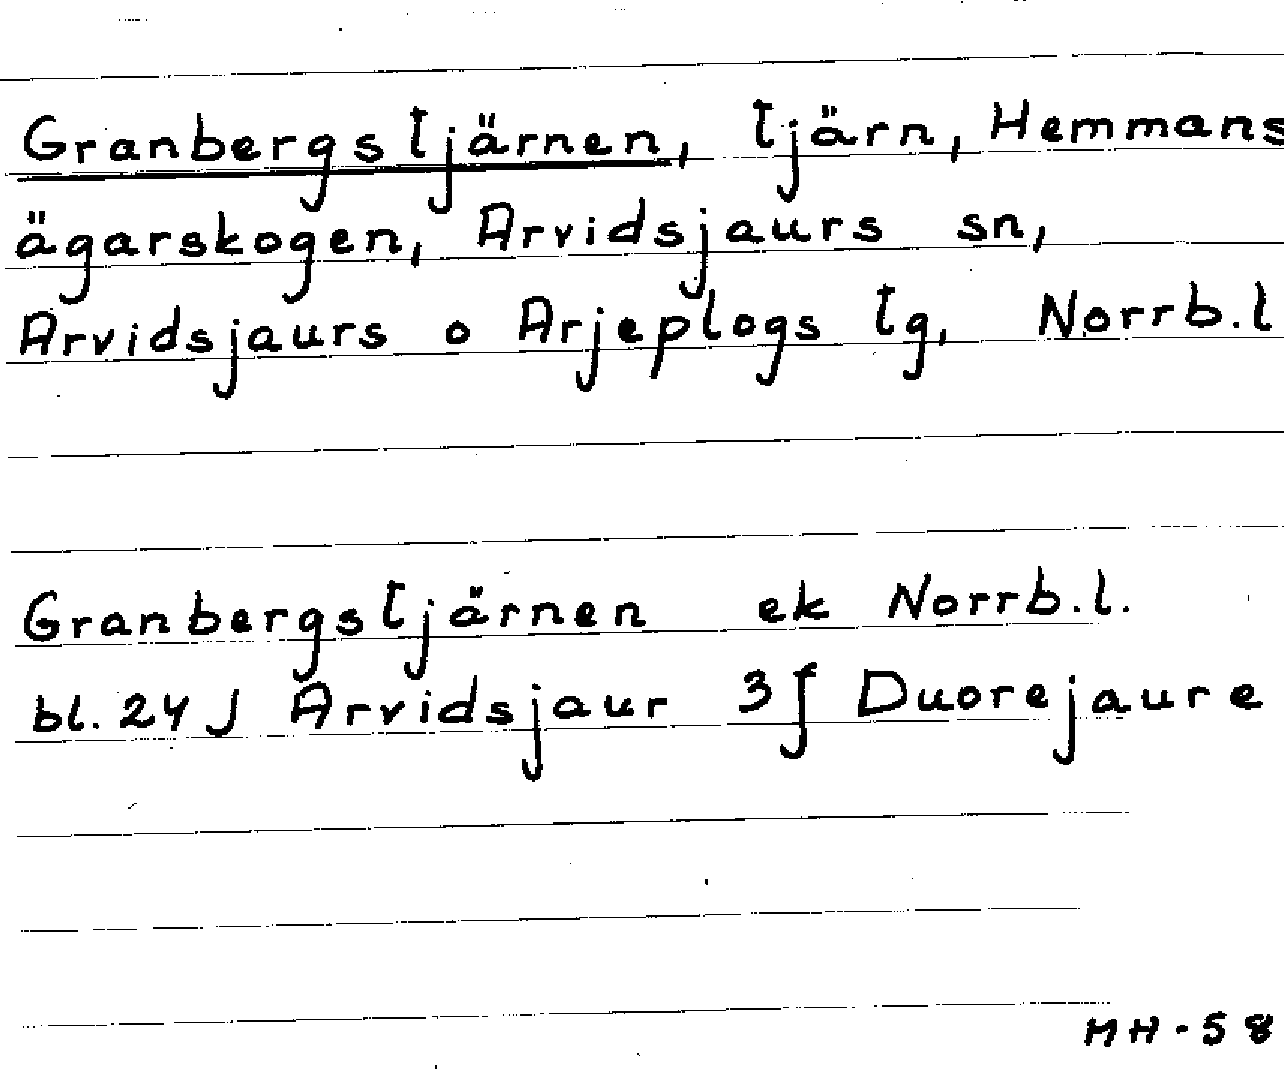 Granbergstjärnen, tjärn, Hemmans
ägarskogen, Arvidsjaurs sn,
Arvidsjaurs o Arjeplogs tg, Norrb.l
Granbergstjärnen ek Norrb.l.
bl. 24 J Arvidsjaur 3f Duorejaure
MH-58